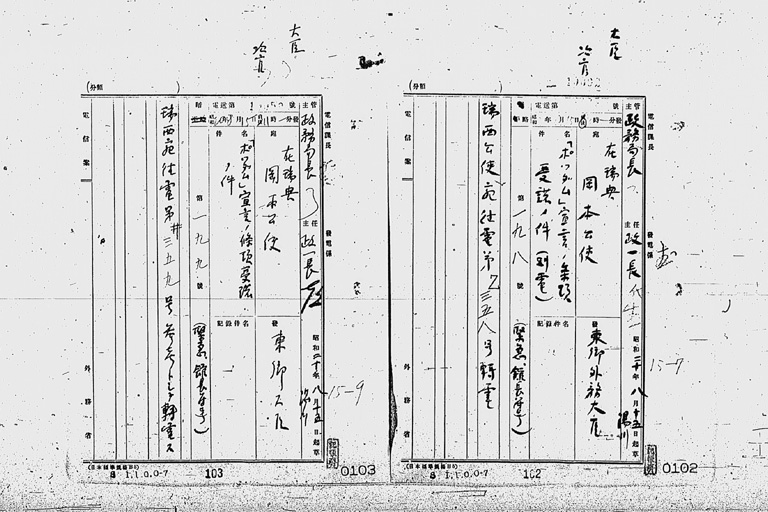 大臣
次官
(分類 )
電信課長
發電係
電信案
外務省
主管
政務局長
主任
政一長
昭和二十年八月十五日起草
電送第 號
昭和 年 月 日 時 分發
宛
在瑞典
岡本公使
發
東郷外務大臣
件名
「ポツダム」宣言ノ條項
受諾ノ件(別電)
記錄件名
第一九八號
(緊急 館長符号)
瑞西公使宛往電第 三五八号轉電
15-7
(日本標準規格B5)
8 1.1.0.0-7
102
0102
大臣
次官
(分類 )
電信課長
發電係
電信案
外務省
主管
政務局長
主任
政一長
昭和二十年八月十五日起草
電送第 號
昭和 年 月 日 時 分發
宛
在瑞典
岡本公使
發
東郷大臣
件名
「ポツダム」宣言ノ條項受諾
ノ件
記錄件名
第一九九號
(緊急 館長符号)
瑞西宛往電第 三五九号参考トシテ轉電ス
15-9
(日本標準規格B5)
8 1.1.0.0-7
103
0103